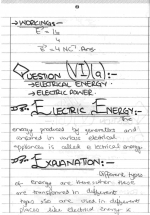 → WORKINGS:-
E = 16
4
E = 4 NC⁻¹ Ans
QUESTION (VI)(a):-
→ ELECTRICAL ENERGY
→ ELECTRIC POWER
ELECTRIC ENERGY:-
The
energy produced by generators and
consumed in various electrical
appliances is called a electrical energy.
EXPLANATION:-
Different types
of energy are there when there
are transformed in different
types also are used in different
places like electrical energy is